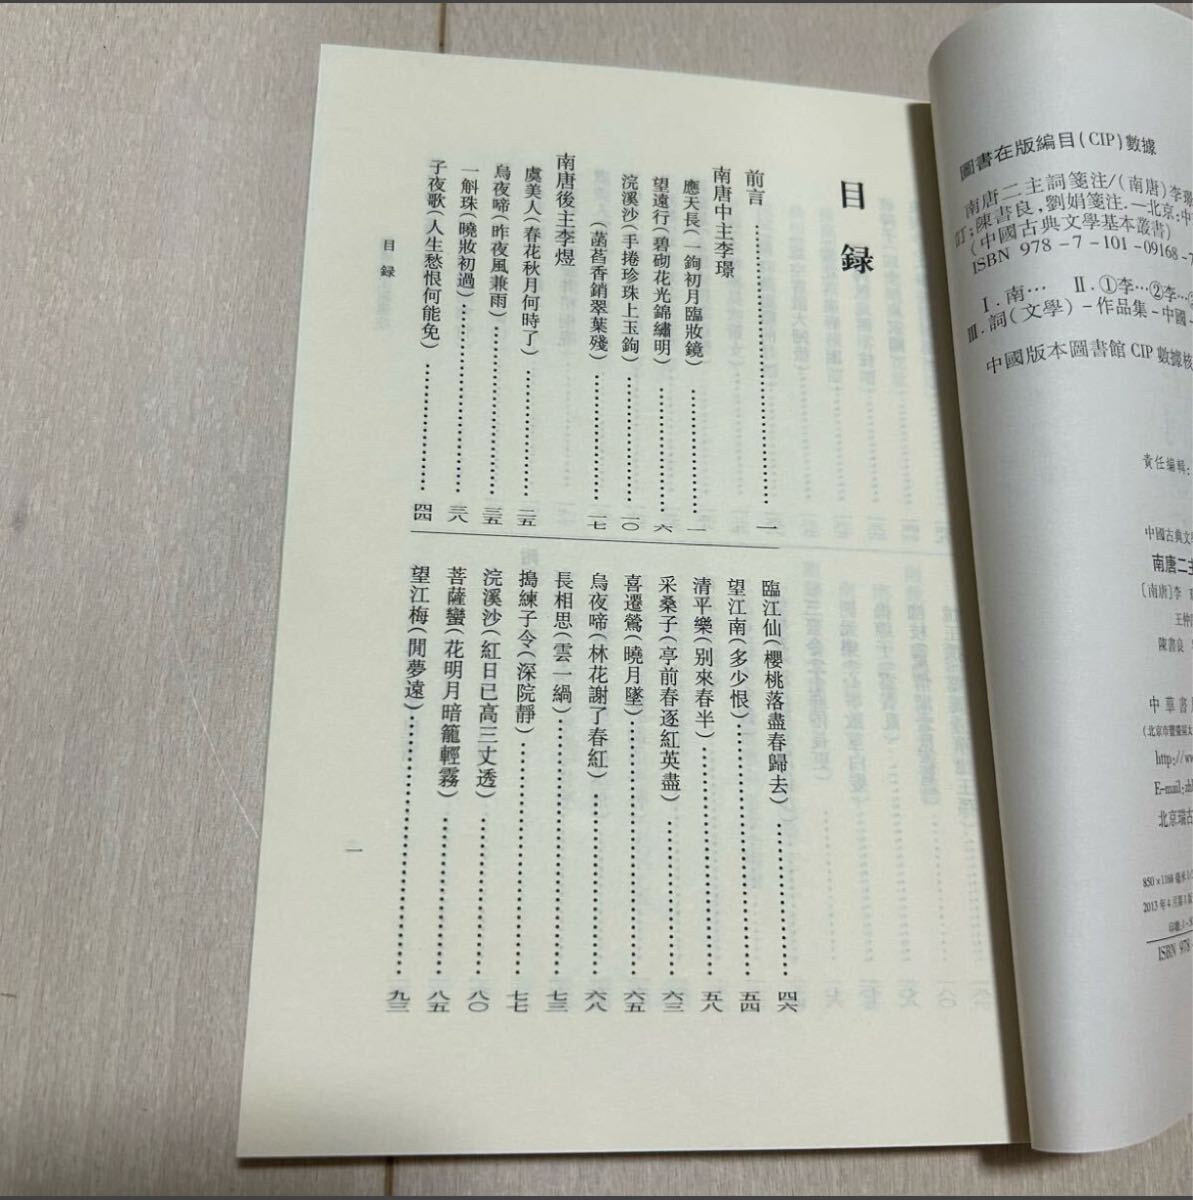 圖書在版編目(CIP)數據
南唐二主詞箋注/(南唐)李璟
訂;陳書良,劉娟箋注.—北京:中
(中國古典文學基本叢書)
ISBN 978-7-101-09168-7
Ⅰ.南… Ⅱ.①李…②李…
Ⅲ.詞(文學)-作品集-中國-
中國版本圖書館CIP數據核
責任編輯:
中國古典文學
南唐二主
〔南唐〕李
王仲
陳書良
中華書局
(北京市豐臺區太
http://ww
E-mail:zhb
北京瑞古
850×1168毫米1/
2013年4月第1版
ISBN 978
目錄
前言……一
南唐中主李璟
應天長(一鉤初月臨妝鏡)……一
望遠行(碧砌花光錦繡明)……六
浣溪沙(手捲珍珠上玉鉤)……一〇
(菡萏香銷翠葉殘)……一七
南唐後主李煜
虞美人(春花秋月何時了)……二五
烏夜啼(昨夜風兼雨)……三五
一斛珠(曉妝初過)……三八
子夜歌(人生愁恨何能免)……四四
臨江仙(櫻桃落盡春歸去)……四六
望江南(多少恨)……五四
清平樂(別來春半)……五八
采桑子(亭前春逐紅英盡)……六三
喜遷鶯(曉月墜)……六五
烏夜啼(林花謝了春紅)……六八
長相思(雲一緺)……七三
搗練子令(深院靜)……七七
浣溪沙(紅日已高三丈透)……八〇
菩薩蠻(花明月暗籠輕霧)……八五
望江梅(閒夢遠)……九三
目錄
一